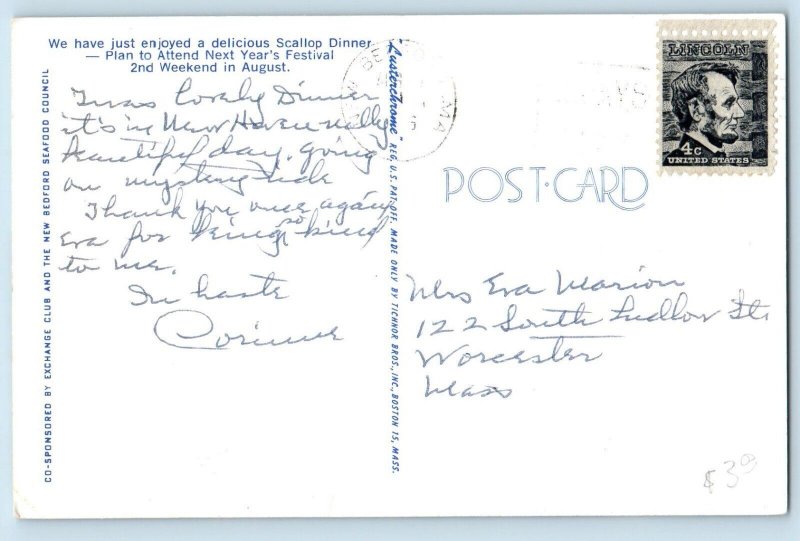 We have just enjoyed a delicious Scallop Dinner
— Plan to Attend Next Year's Festival
2nd Weekend in August.
CO-SPONSORED BY EXCHANGE CLUB AND THE NEW BEDFORD SEAFOOD COUNCIL
lovely Dinner
it's in New Haven
beautiful day. going
on mystery ride
Thank you once again
Eva for being so kind
to me.
In haste
Corinne
"Lusterchrome" REG. U.S. PAT. OFF. MADE ONLY BY TICHNOR BROS., INC., BOSTON 15, MASS.
MA
LINCOLN
4c
UNITED STATES
POST-CARD
Mrs Eva Marion
122 South Ludlow St.
Worcester
Mass
$3